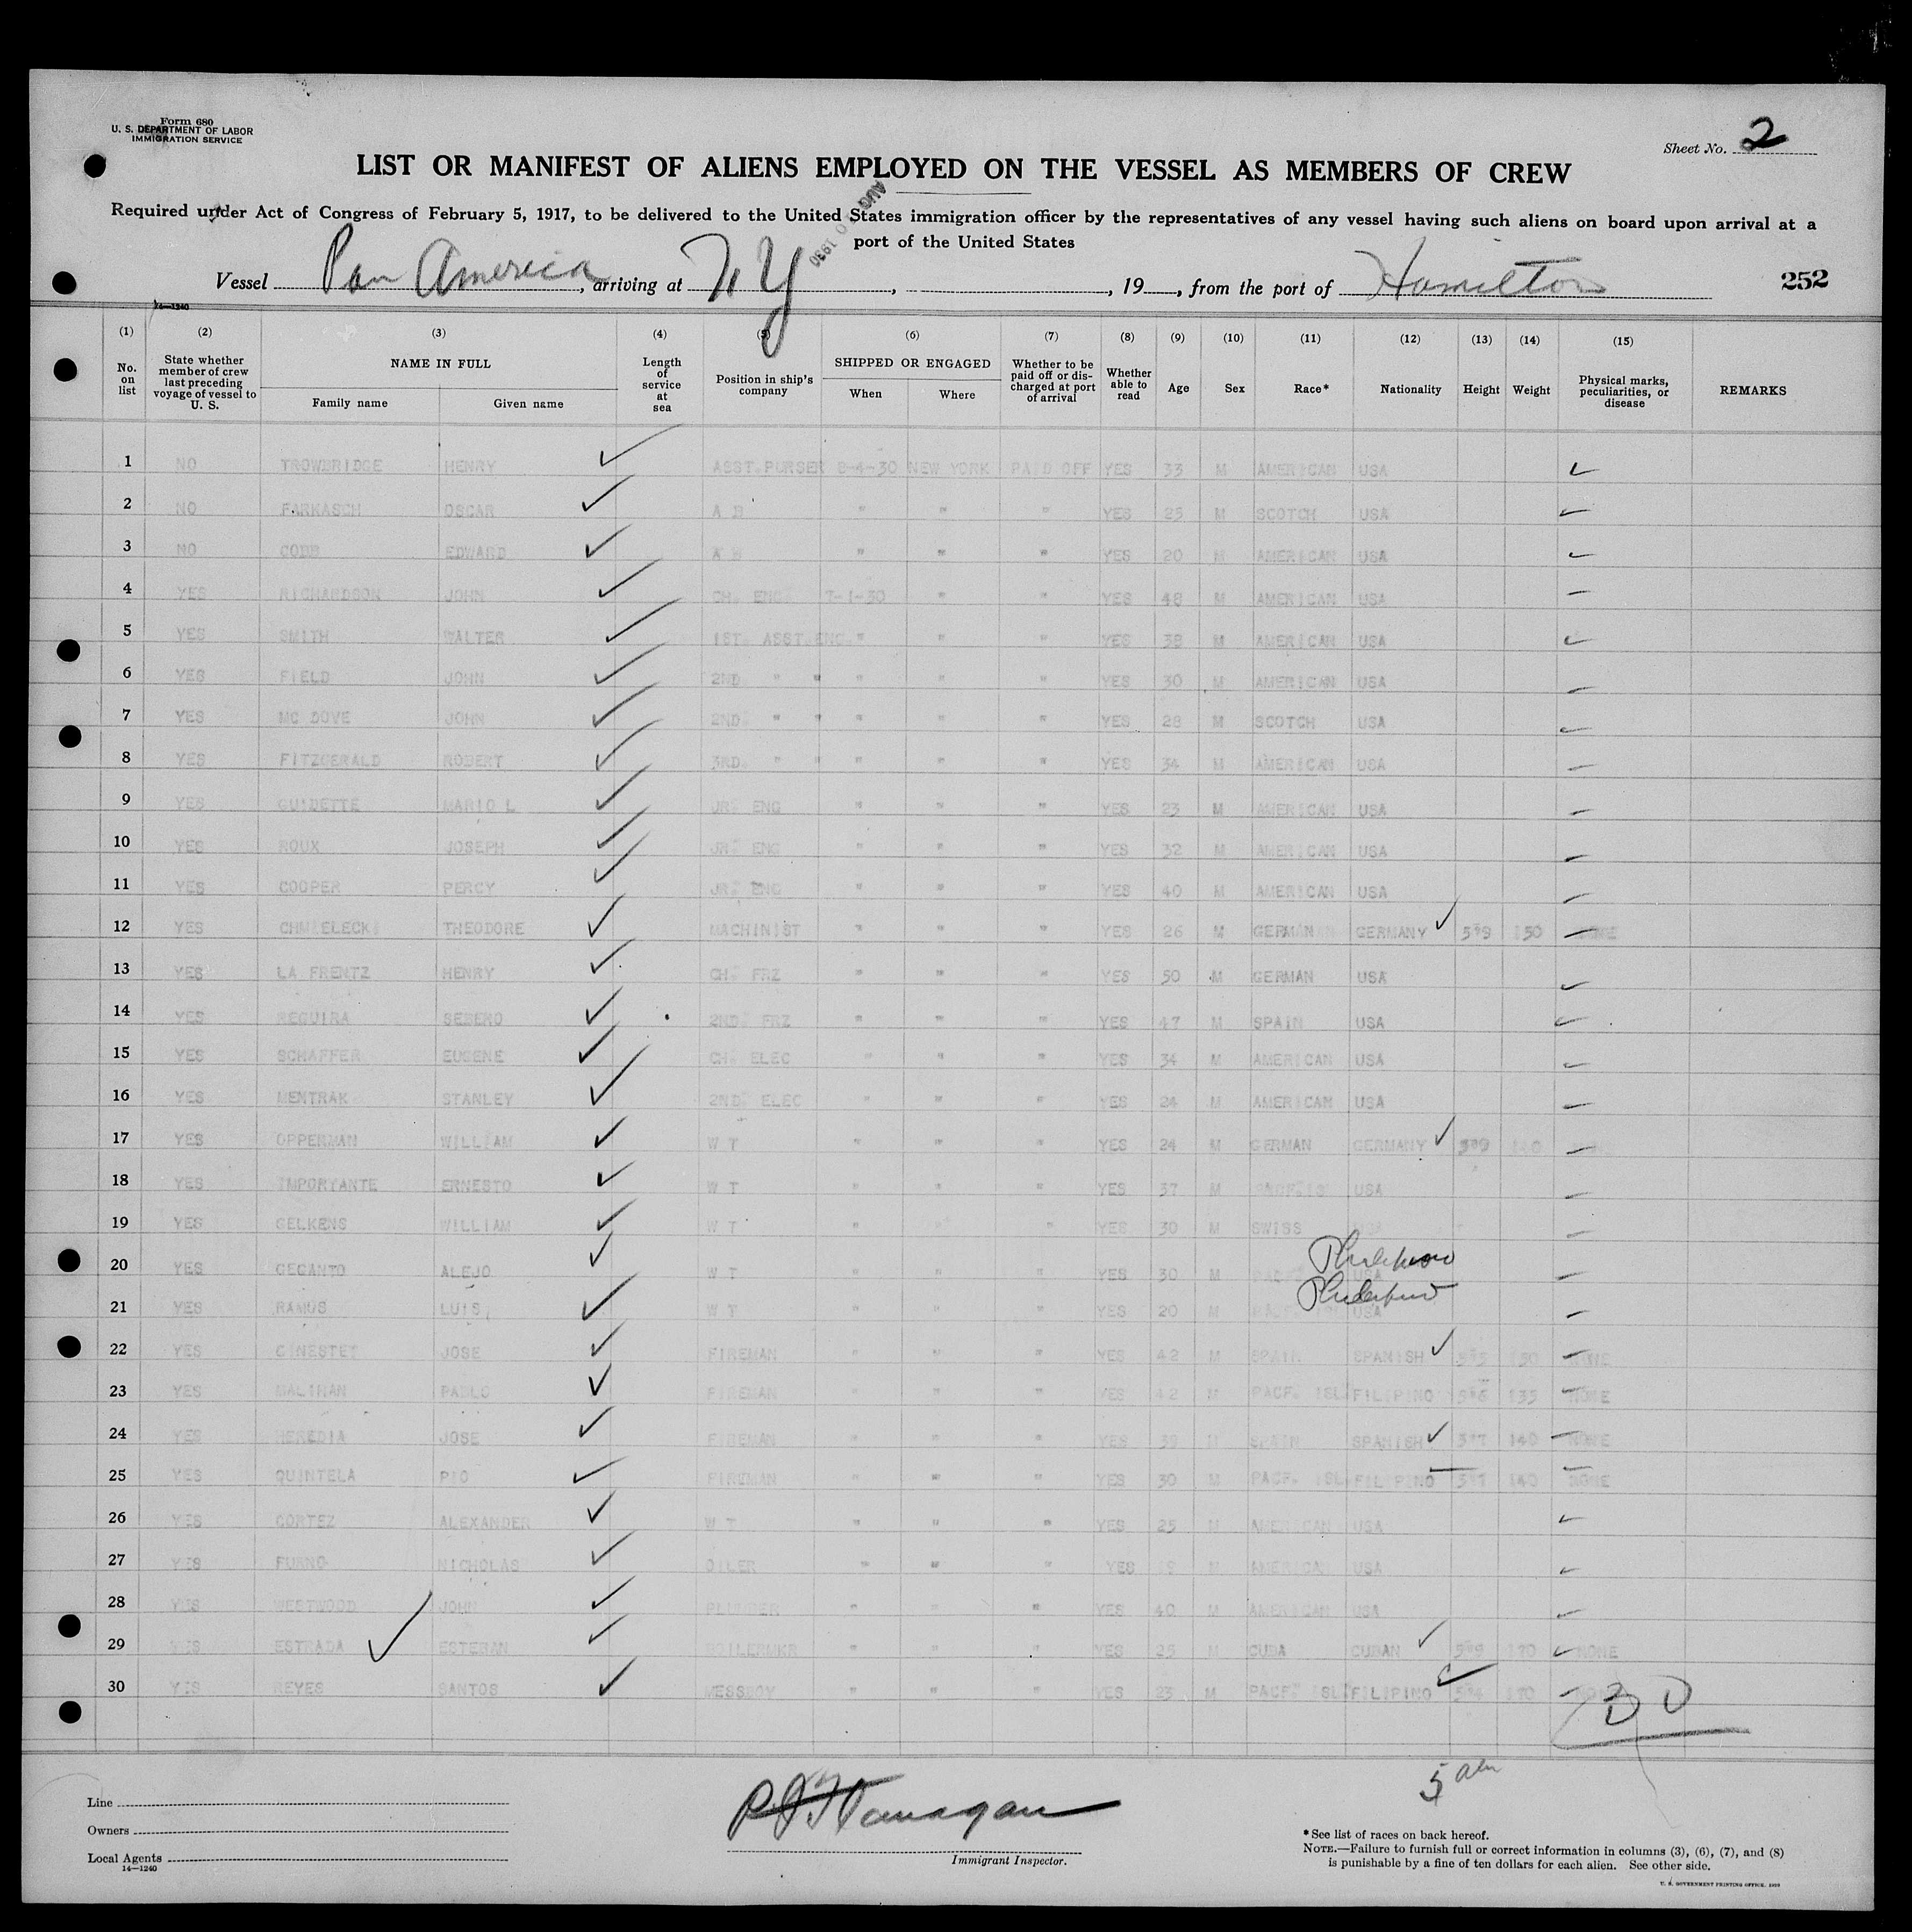 Form 680
U. S. DEPARTMENT OF LABOR
IMMIGRATION SERVICE
Sheet No. 2
LIST OR MANIFEST OF ALIENS EMPLOYED ON THE VESSEL AS MEMBERS OF CREW
Required under Act of Congress of February 5, 1917, to be delivered to the United States immigration officer by the representatives of any vessel having such aliens on board upon arrival at a
port of the United States
Vessel Pan America, arriving at N Y, , 19 , from the port of Hamilton 252
14—1240
(1) (2) (3) (4) (5) (6) (7) (8) (9) (10) (11) (12) (13) (14) (15)
No. on list State whether member of crew last preceding voyage of vessel to U. S. NAME IN FULL Family name Given name Length of service at sea Position in ship's company SHIPPED OR ENGAGED When Where Whether to be paid off or discharged at port of arrival Whether able to read Age Sex Race* Nationality Height Weight Physical marks, peculiarities, or disease REMARKS
1 NO TROWBRIDGE HENRY ASST.PURSER 8-4-30 NEW YORK PAID OFF YES 33 M AMERICAN USA
2 NO FARKASCH OSCAR A B " " " YES 25 M SCOTCH USA
3 NO COBB EDWARD A B " " " YES 20 M AMERICAN USA
4 YES RICHARDSON JOHN CH. ENG. 7-1-30 " " YES 48 M AMERICAN USA
5 YES SMITH WALTER 1ST. ASST.ENG. " " " YES 38 M AMERICAN USA
6 YES FIELD JOHN 2ND. " " " " " YES 30 M AMERICAN USA
7 YES MC DOVE JOHN 2ND. " " " " " YES 28 M SCOTCH USA
8 YES FITZGERALD ROBERT 3RD. " " " " " YES 34 M AMERICAN USA
9 YES GUIDETTE MARIO L JR. ENG " " " YES 23 M AMERICAN USA
10 YES ROUX JOSEPH JR. ENG " " " YES 32 M AMERICAN USA
11 YES COOPER PERCY JR. ENG " " " YES 40 M AMERICAN USA
12 YES CHMIELECKI THEODORE MACHINIST " " " YES 26 M GERMAN GERMANY 5"9 150 NONE
13 YES LA FRENTZ HENRY CH. FRZ " " " YES 50 M GERMAN USA
14 YES REGUIRA SERENO 2ND. FRZ " " " YES 47 M SPAIN USA
15 YES SCHAFFER EUGENE CH. ELEC " " " YES 34 M AMERICAN USA
16 YES MENTRAK STANLEY 2ND. ELEC " " " YES 24 M AMERICAN USA
17 YES OPPERMAN WILLIAM W T " " " YES 24 M GERMAN GERMANY
18 YES IMPORTANTE ERNESTO W T " " " YES 37 M USA
19 YES GELKENS WILLIAM W T " " " YES 30 M SWISS
20 YES GEGANTO ALEJO W T " " " YES 30 M USA
21 YES RAMOS LUIS W T " " " YES 20 M USA
22 YES GINESTET JOSE FIREMAN " " " YES 42 M SPAIN SPANISH 5"5 150 NONE
23 YES MALINAN PABLO FIREMAN " " " YES 42 M PACF. ISL FILIPINO 5"6 135 NONE
24 YES HEREDIA JOSE FIREMAN " " " YES 39 M SPAIN SPANISH 5"7 140 NONE
25 YES QUINTELA PIO FIREMAN " " " YES 30 M PACF. ISL FILIPINO 5"7 140 NONE
26 YES CORTEZ ALEXANDER W T " " " YES 25 M AMERICAN USA
27 YES FURNO NICHOLAS OILER " " " YES M AMERICAN USA
28 YES WESTWOOD JOHN PLUMBER " " " YES 40 M AMERICAN USA
29 YES ESTRADA ESTEBAN BOILERMKR " " " YES 25 M CUBA CUBAN 5"9 170 NONE
30 YES REYES SANTOS MESSBOY " " " YES 23 M PACF. ISL FILIPINO 5"4
30
5 aln
Line
Owners
Local Agents
14—1240
P J Flanagan
Immigrant Inspector.
*See list of races on back hereof.
NOTE.—Failure to furnish full or correct information in columns (3), (6), (7), and (8)
is punishable by a fine of ten dollars for each alien. See other side.
U. S. GOVERNMENT PRINTING OFFICE